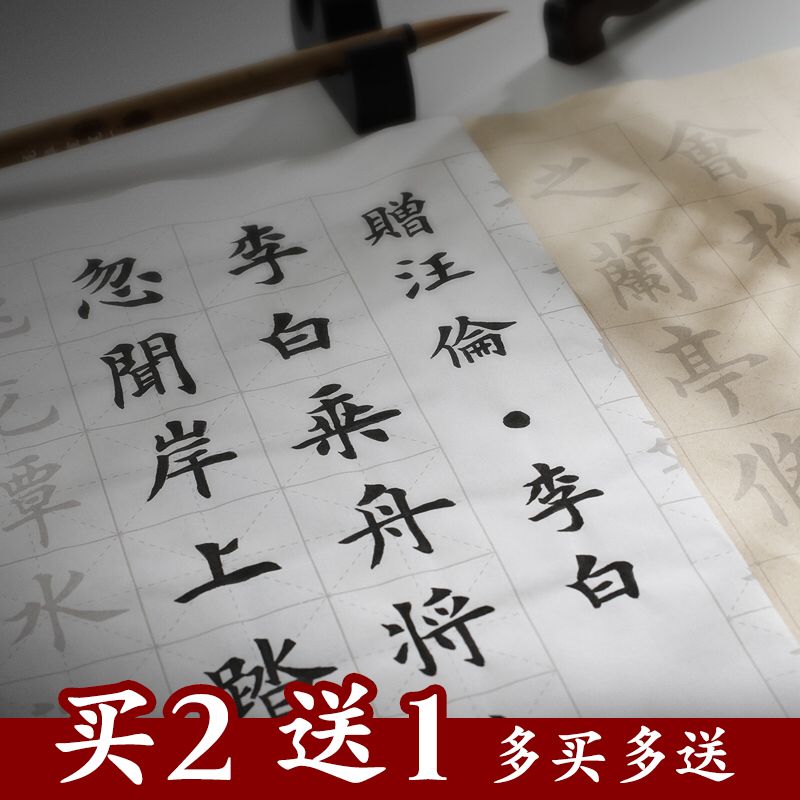 贈汪倫·李白
李白乘舟将
忽聞岸上踏
花潭水
會
之蘭亭脩
买2送1 多买多送